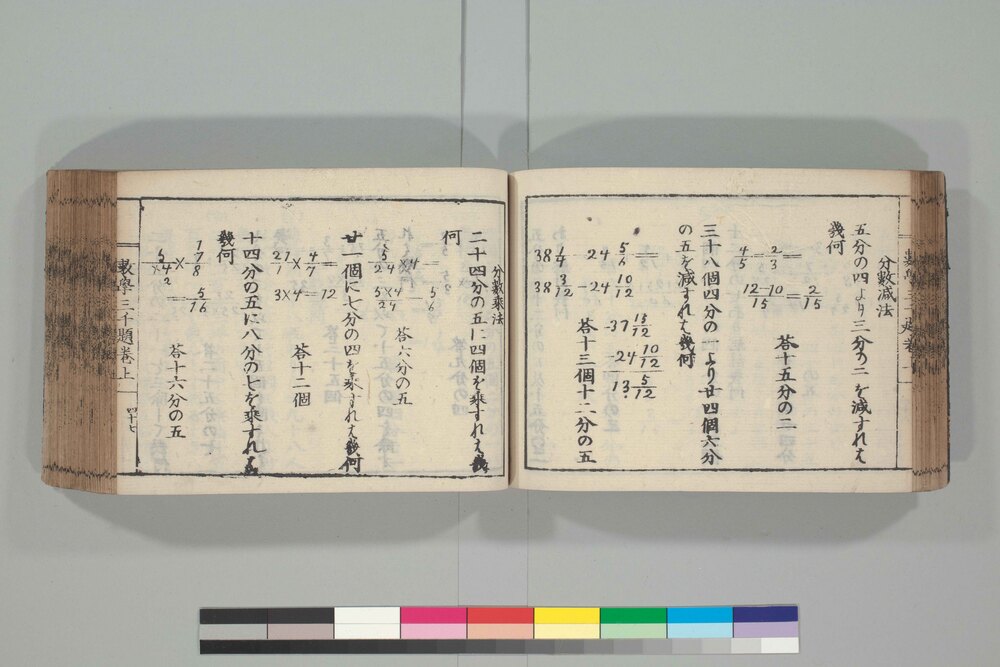 分數減法
五分の四より三分の二を減すれは
幾何
4/5 - 2/3 =
12-10/15 = 2/15
答十五分の二
三十八個四分の一より廿四個六分
の五を減すれは幾何
38 1/4 - 24 5/6 =
38 3/12 - 24 10/12
-37 15/12
-24 10/12
13 5/12
答十三個十二分の五
分數乘法
二十四分の五に四個を乘すれは幾
何
5/24 × 4 =
5×4/24 — 5/6
答六分の五
廿一個に七分の四を乘すれは幾何
21/1 × 4/7 =
3×4=12
答十二個
十四分の五に八分の七を乘すれは
幾何
7/8
= 5/16
答十六分の五
數學三千題卷上
四十七